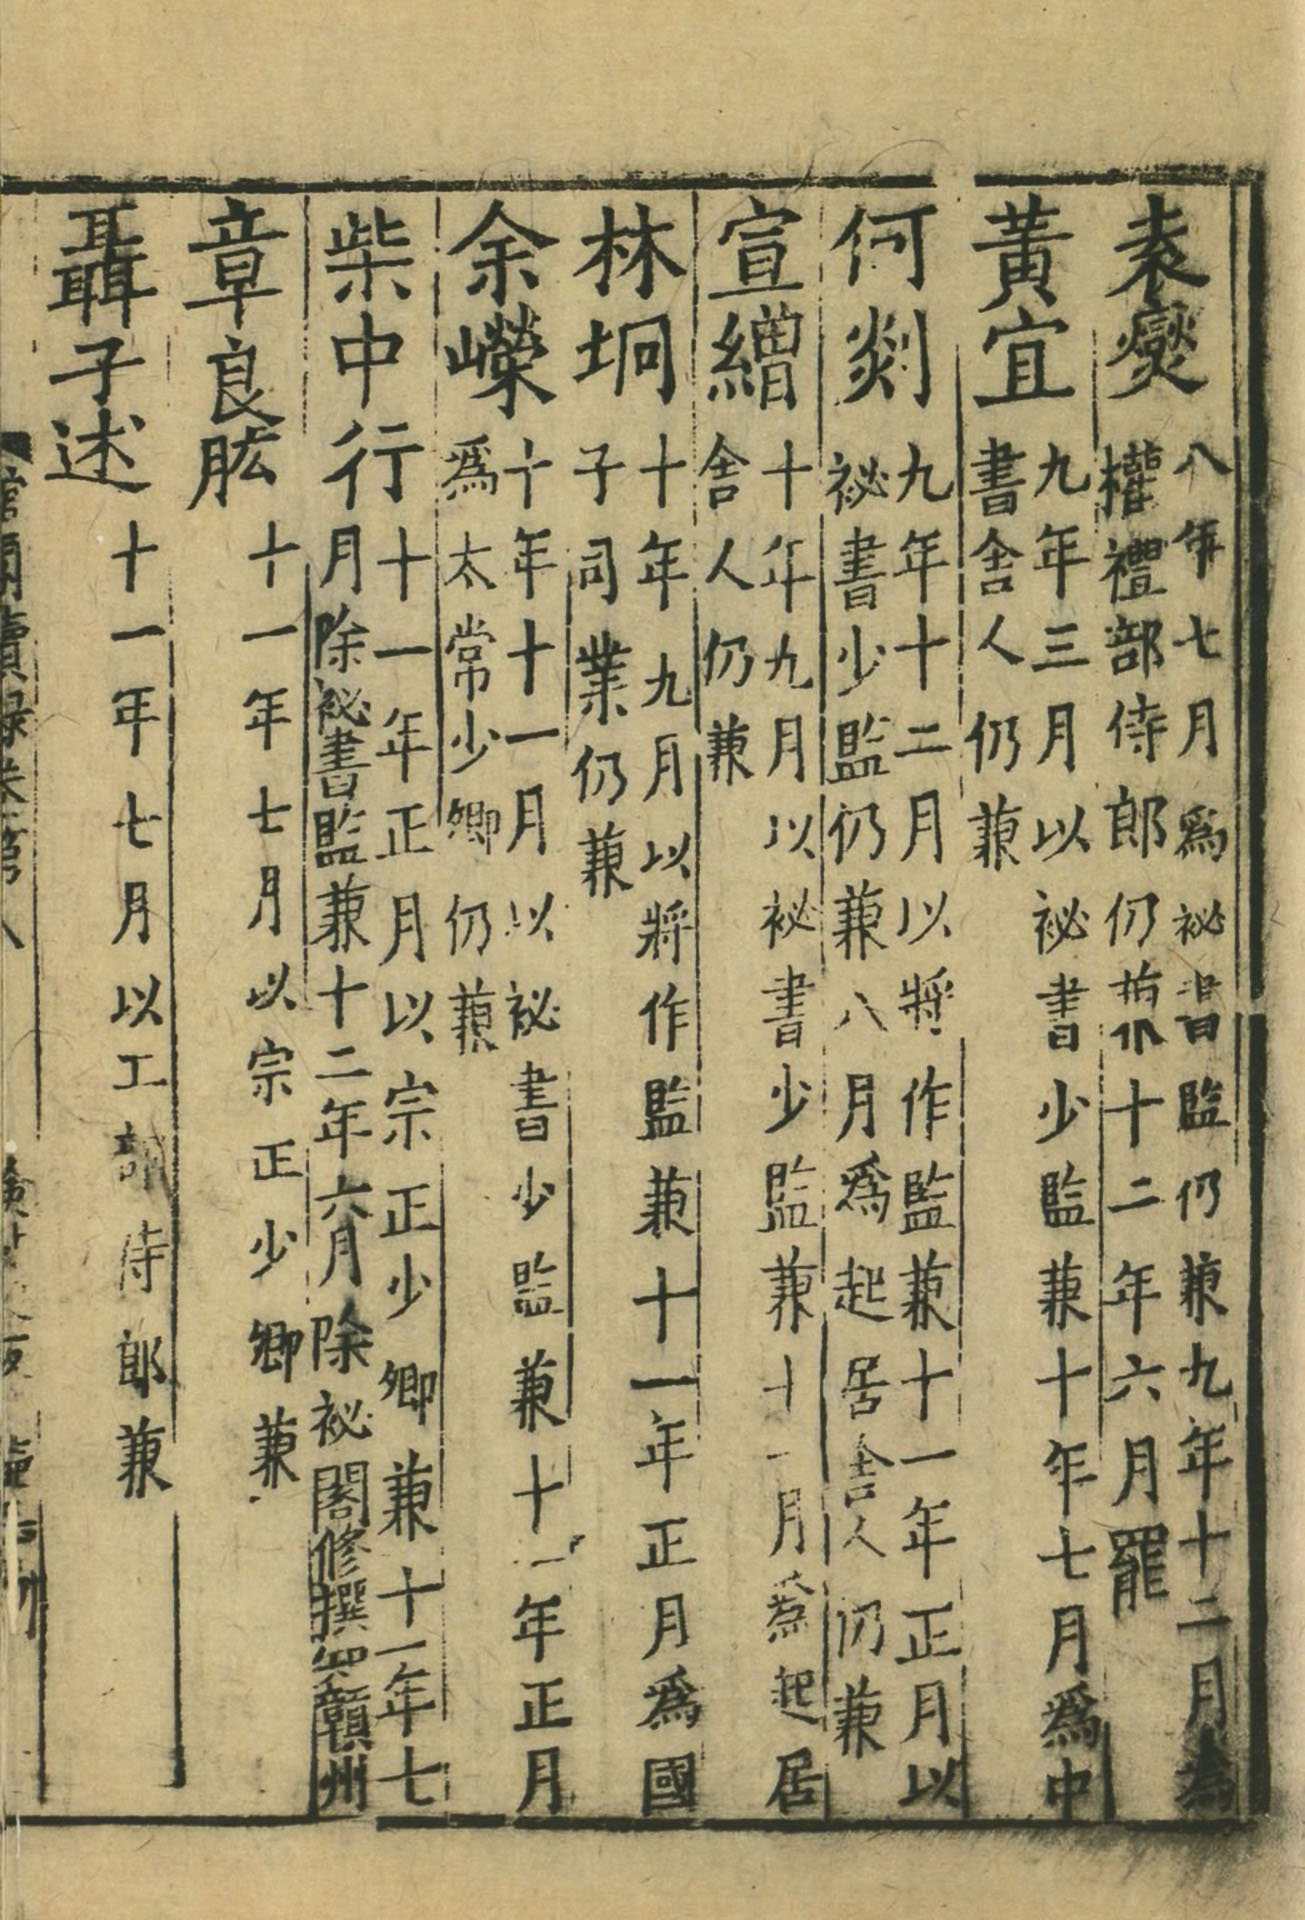 袁燮 八年七月爲祕書監仍兼九年十二月爲
權禮部侍郎仍兼十二年六月罷
黃宜 九年三月以祕書少監兼十年七月爲中
書舍人仍兼
何剡 九年十二月以將作監兼十一年正月以
祕書少監仍兼八月爲起居舍人仍兼
宣繒 十年九月以祕書少監兼十一月爲起居
舍人仍兼
林坰 十年九月以將作監兼十一年正月爲國
子司業仍兼
余嶸 十年十一月以祕書少監兼十一年正月
爲太常少卿仍兼
柴中行 十一年正月以宗正少卿兼十一年七
月除祕書監兼十二年六月除祕閣修撰知贛州
章良肱 十一年七月以宗正少卿兼
聶子述 十一年七月以工部侍郎兼
館閣續録卷第八